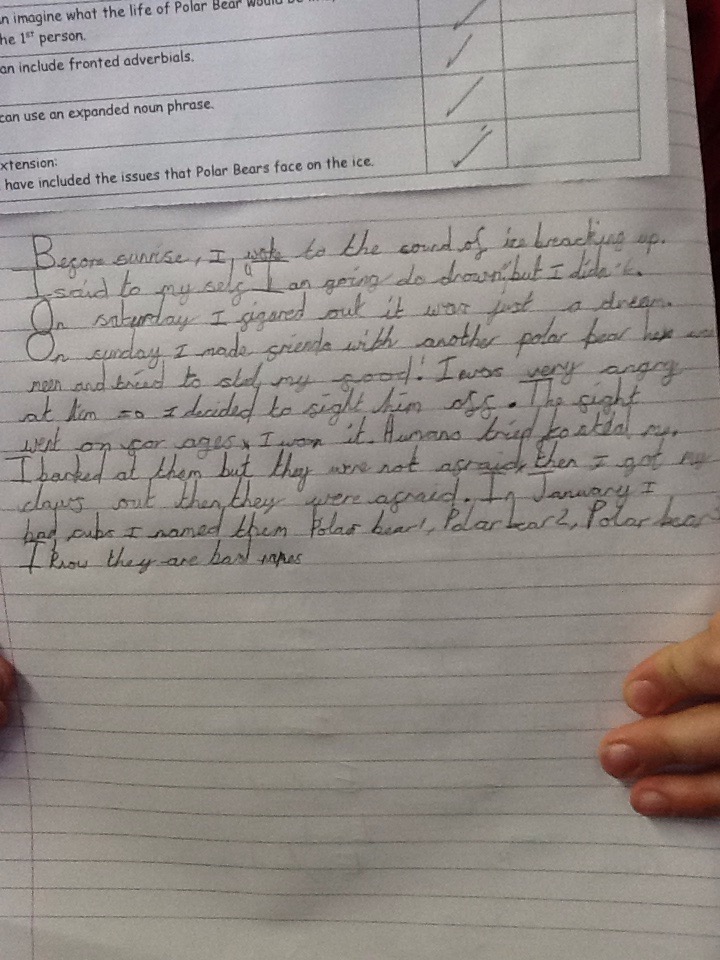 n imagine what the life of Polar Bear would be
he 1st person.
an include fronted adverbials.
can use an expanded noun phrase.
xtension:
have included the issues that Polar Bears face on the ice.
Before sunrise, I, woke to the sound of ice breacking up.
I said to my self I an going do drown, but I didn't.
On saturday I figared out it was just a dream.
On sunday I made friends with another polar bear
meen and tried to my food! I was very angry
at him so I decided to fight him off. The fight
went on for ages, I won it. Humans tried to my.
I barked at them but they were not afraid, then I got my
claws out then, they were afraid. In January I
had cubs I named them Polar bear 1, Polar bear 2, Polar bear
I know they are bad names